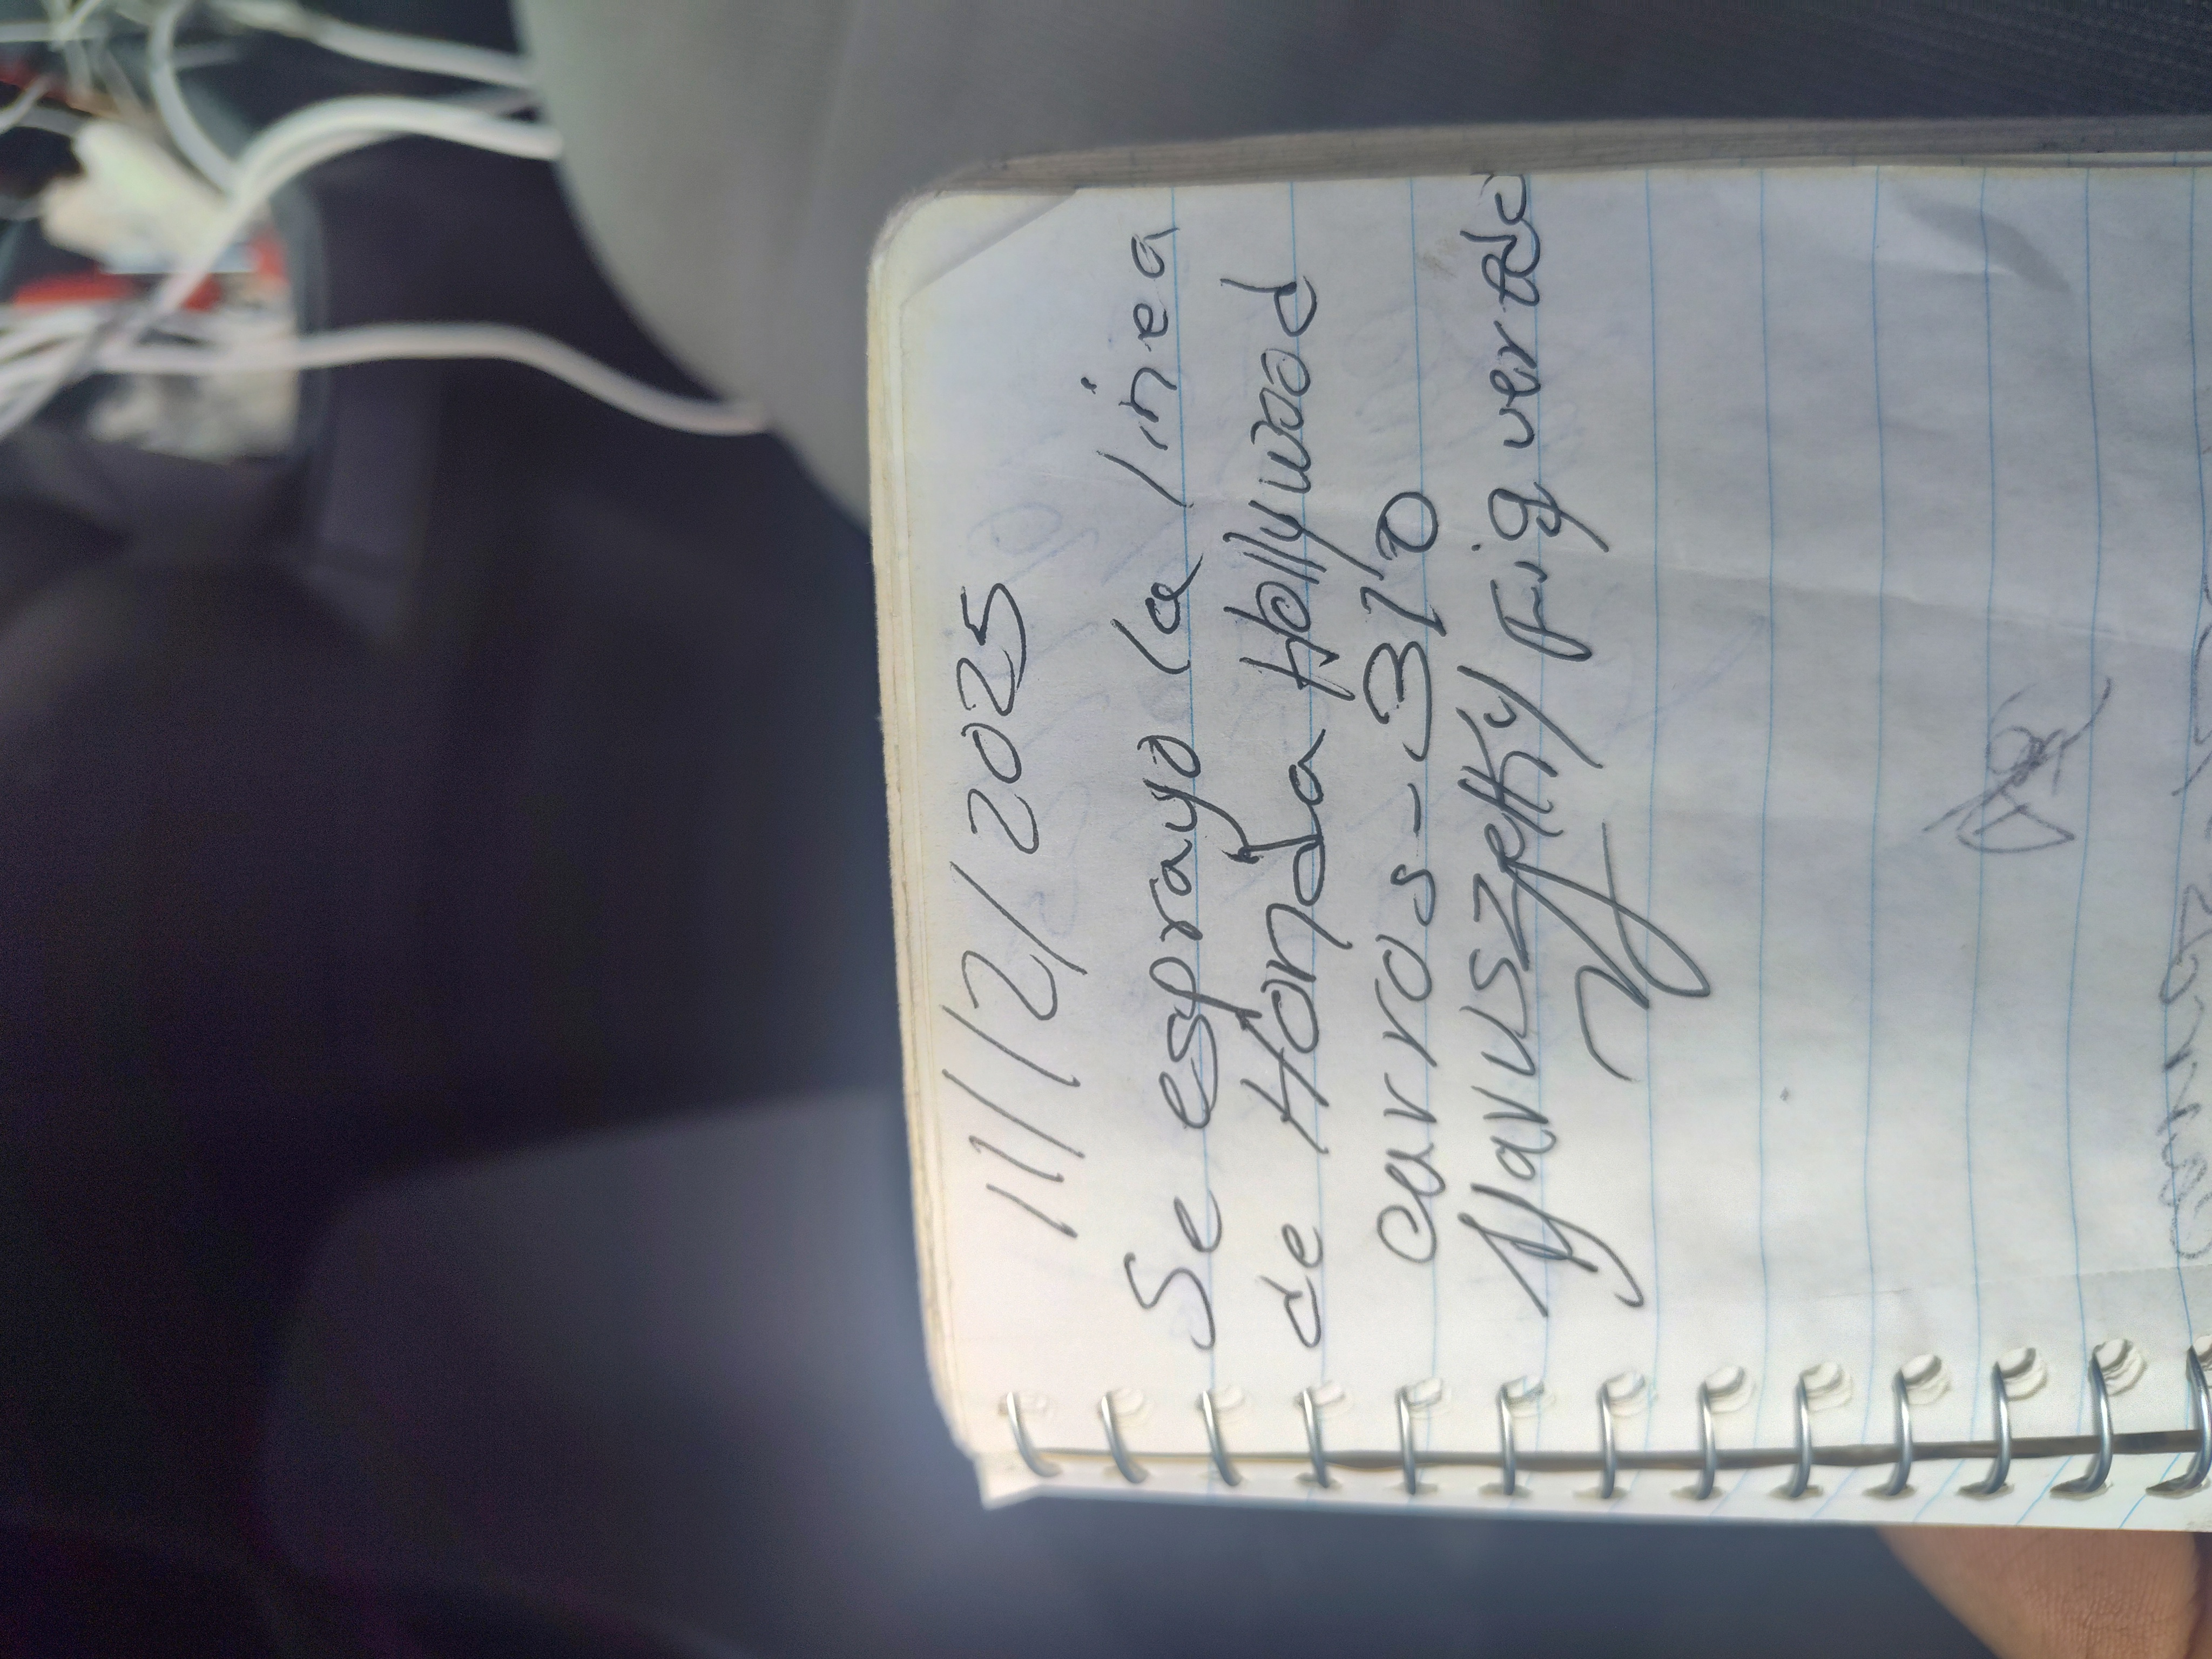 11/12/2025
Se esprayo la linea
de Honda Hollywood
carros - 310
Yaruszetky Fig